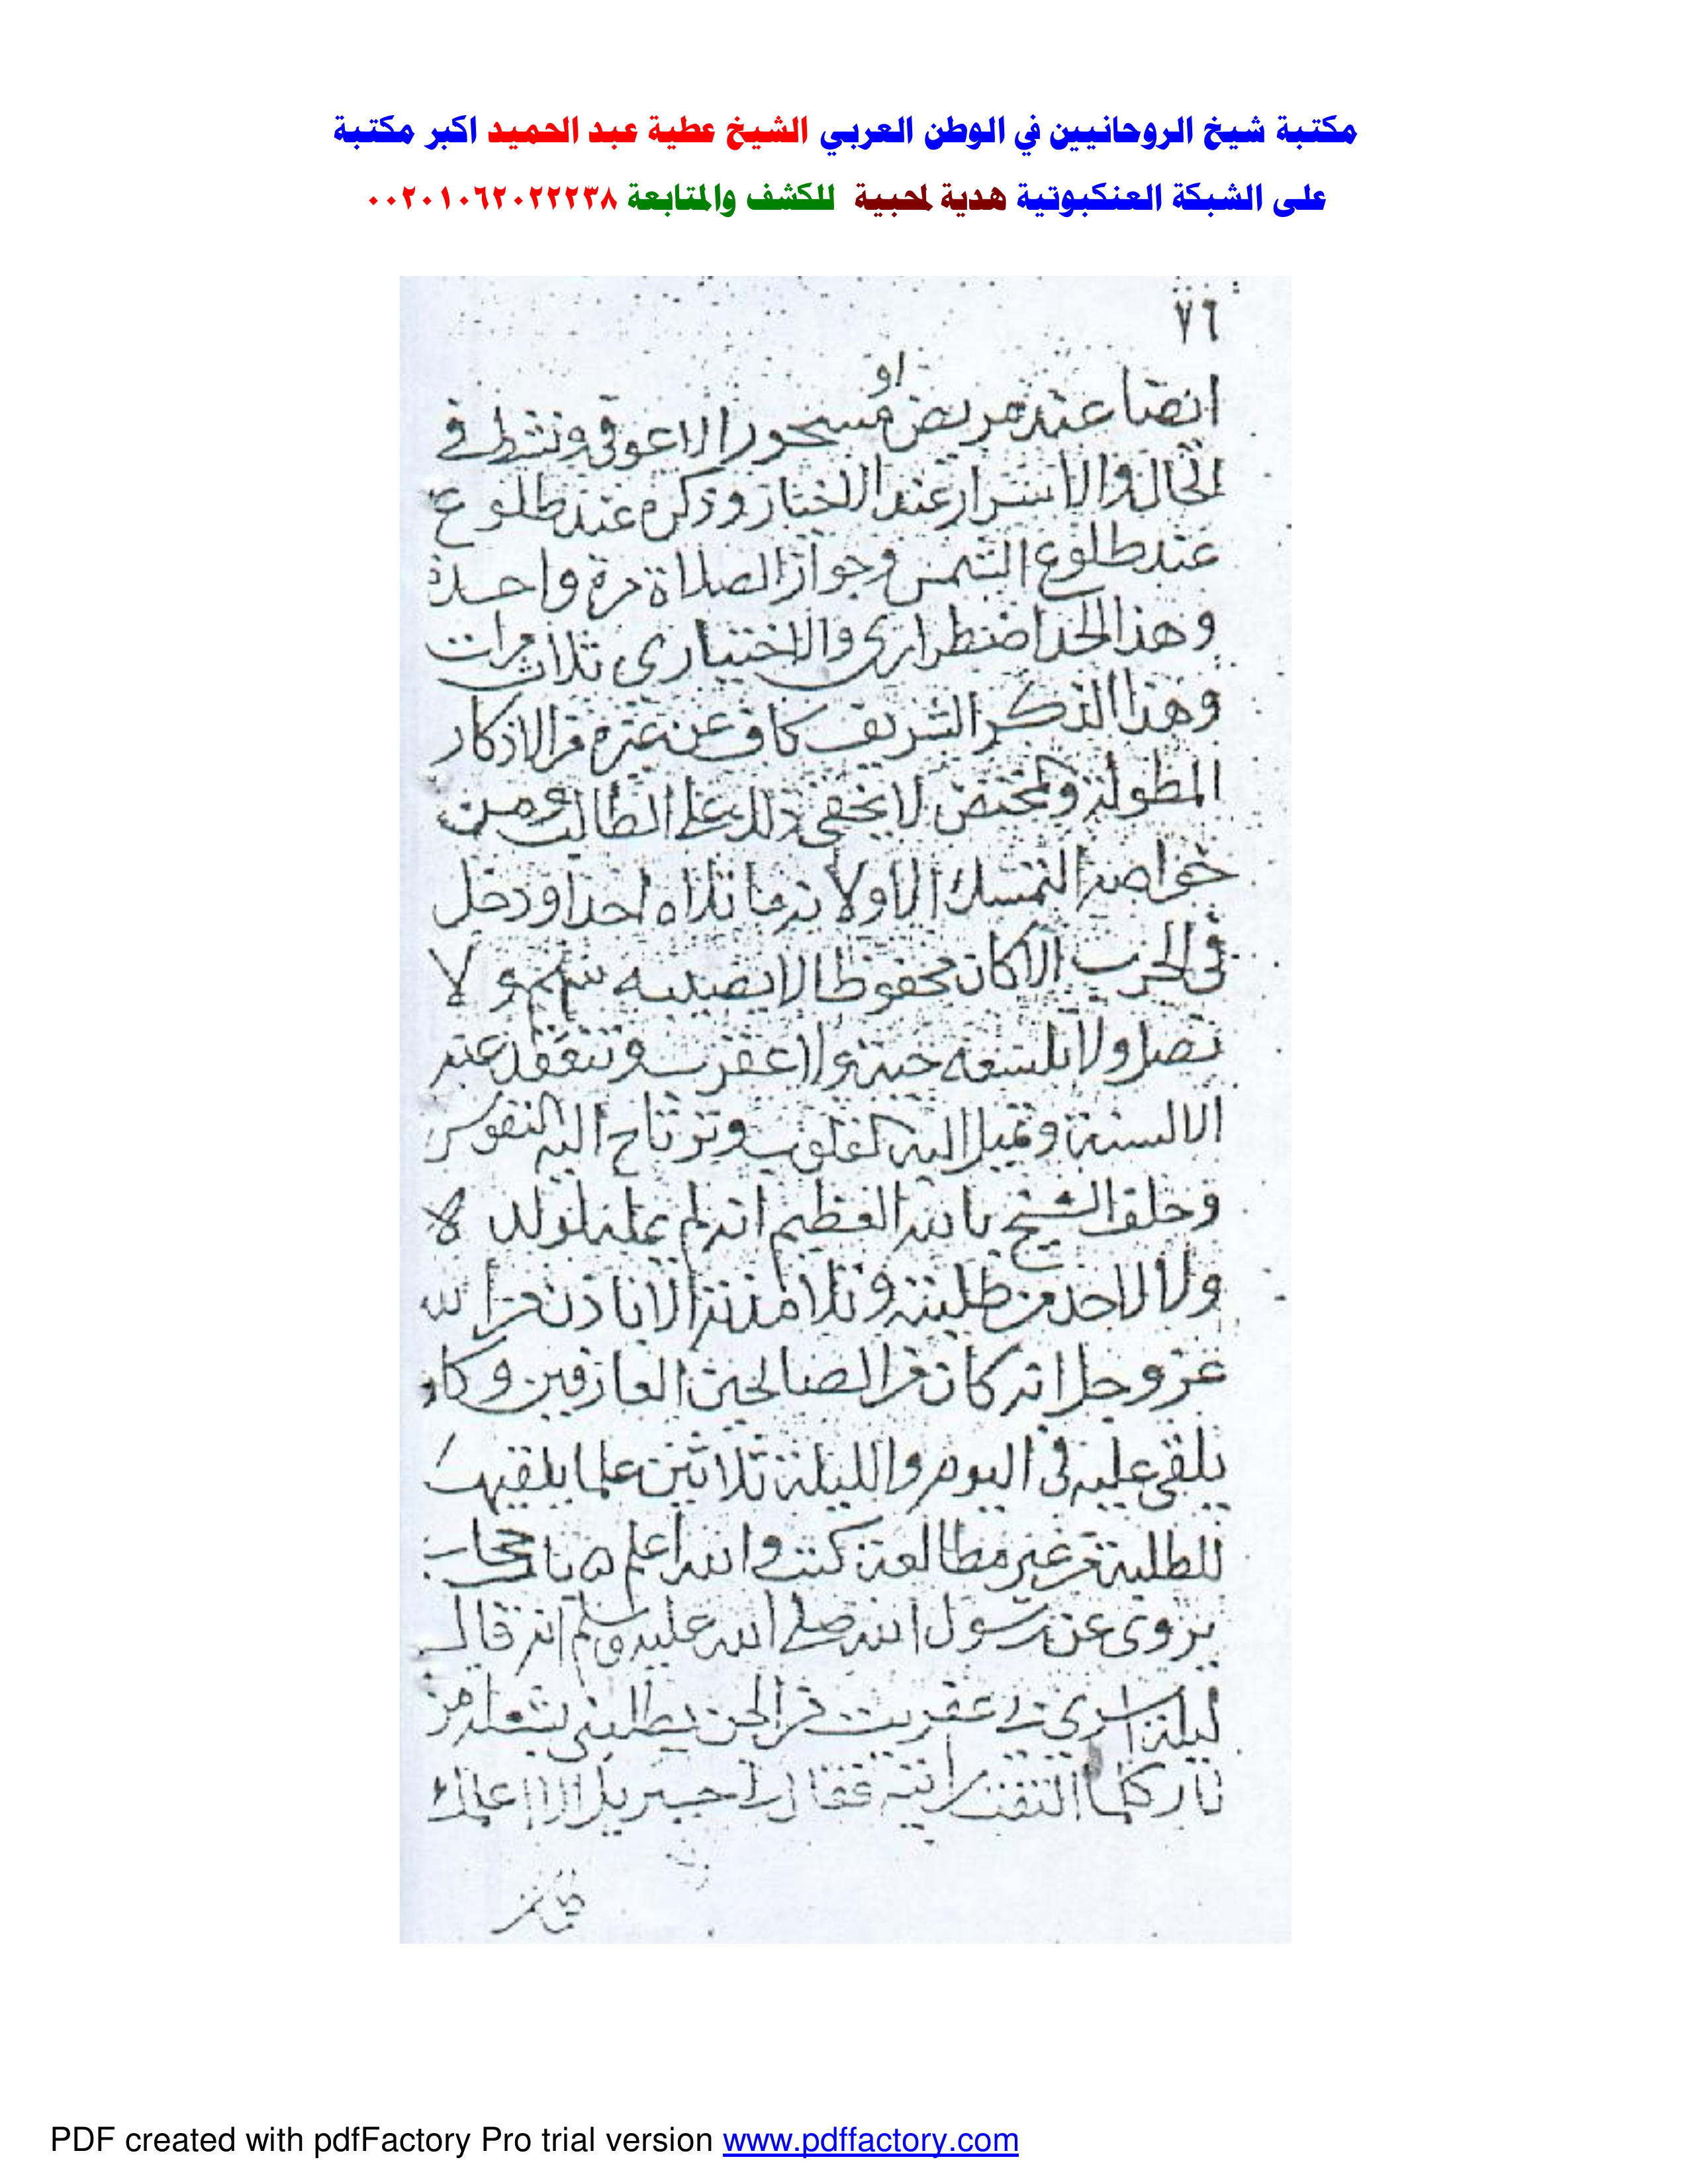 مكتبة شيخ الروحانيين في الوطن العربي الشيخ عطية عبد الحميد اكبر مكتبة
على الشبكة العنكبوتية هدية لمحبية للكشف والمتابعة ٠٠٢٠١٠٦٢٠٢٢٢٣٨
٧٦
او
ايضا عند مريض مسحور الا عوفي ونشط في
الحال والاسرار عند الاختبار وذكره عند طلوع
عند طلوع الشمس وجواز الصلاة مرة واحدة
وهذا الحد اضطراري والاختياري ثلاث مرات
وهذا الذكر الشريف كاف عن غيره من الاذكار
المطولة لا يخفى ذلك على الطالب ومن
خواصه التمسك الاولانه ما تلاه احد ودخل
في الحرب الا كان محفوظا لا يصيبه سهم ولا
نصل ولا تلسعه حية ولا عقرب وتنعقد عنه
الالسنة وتميل اليه القلوب وترتاح اليه النفوس
وحلف الشيخ بالله العظيم انه لم يمليه لولده
ولا لاحد من طلبته وتلامذته الا باذن من الله
عز وجل انه كان من الصالحين العارفين وكان
يلقى عليه في اليوم والليلة ثلاثين علما يلقيها
للطلبة من غير مطالعة كتب والله اعلم ٥ باب
يروى عن رسول الله صلى الله عليه وسلم انه قال
ليلة اسري بي عفريت من الجن يطلبني بشعلة من
نار كلما التفت رايته فقال لي جبريل الا اعلمك
PDF created with pdfFactory Pro trial version www.pdffactory.com